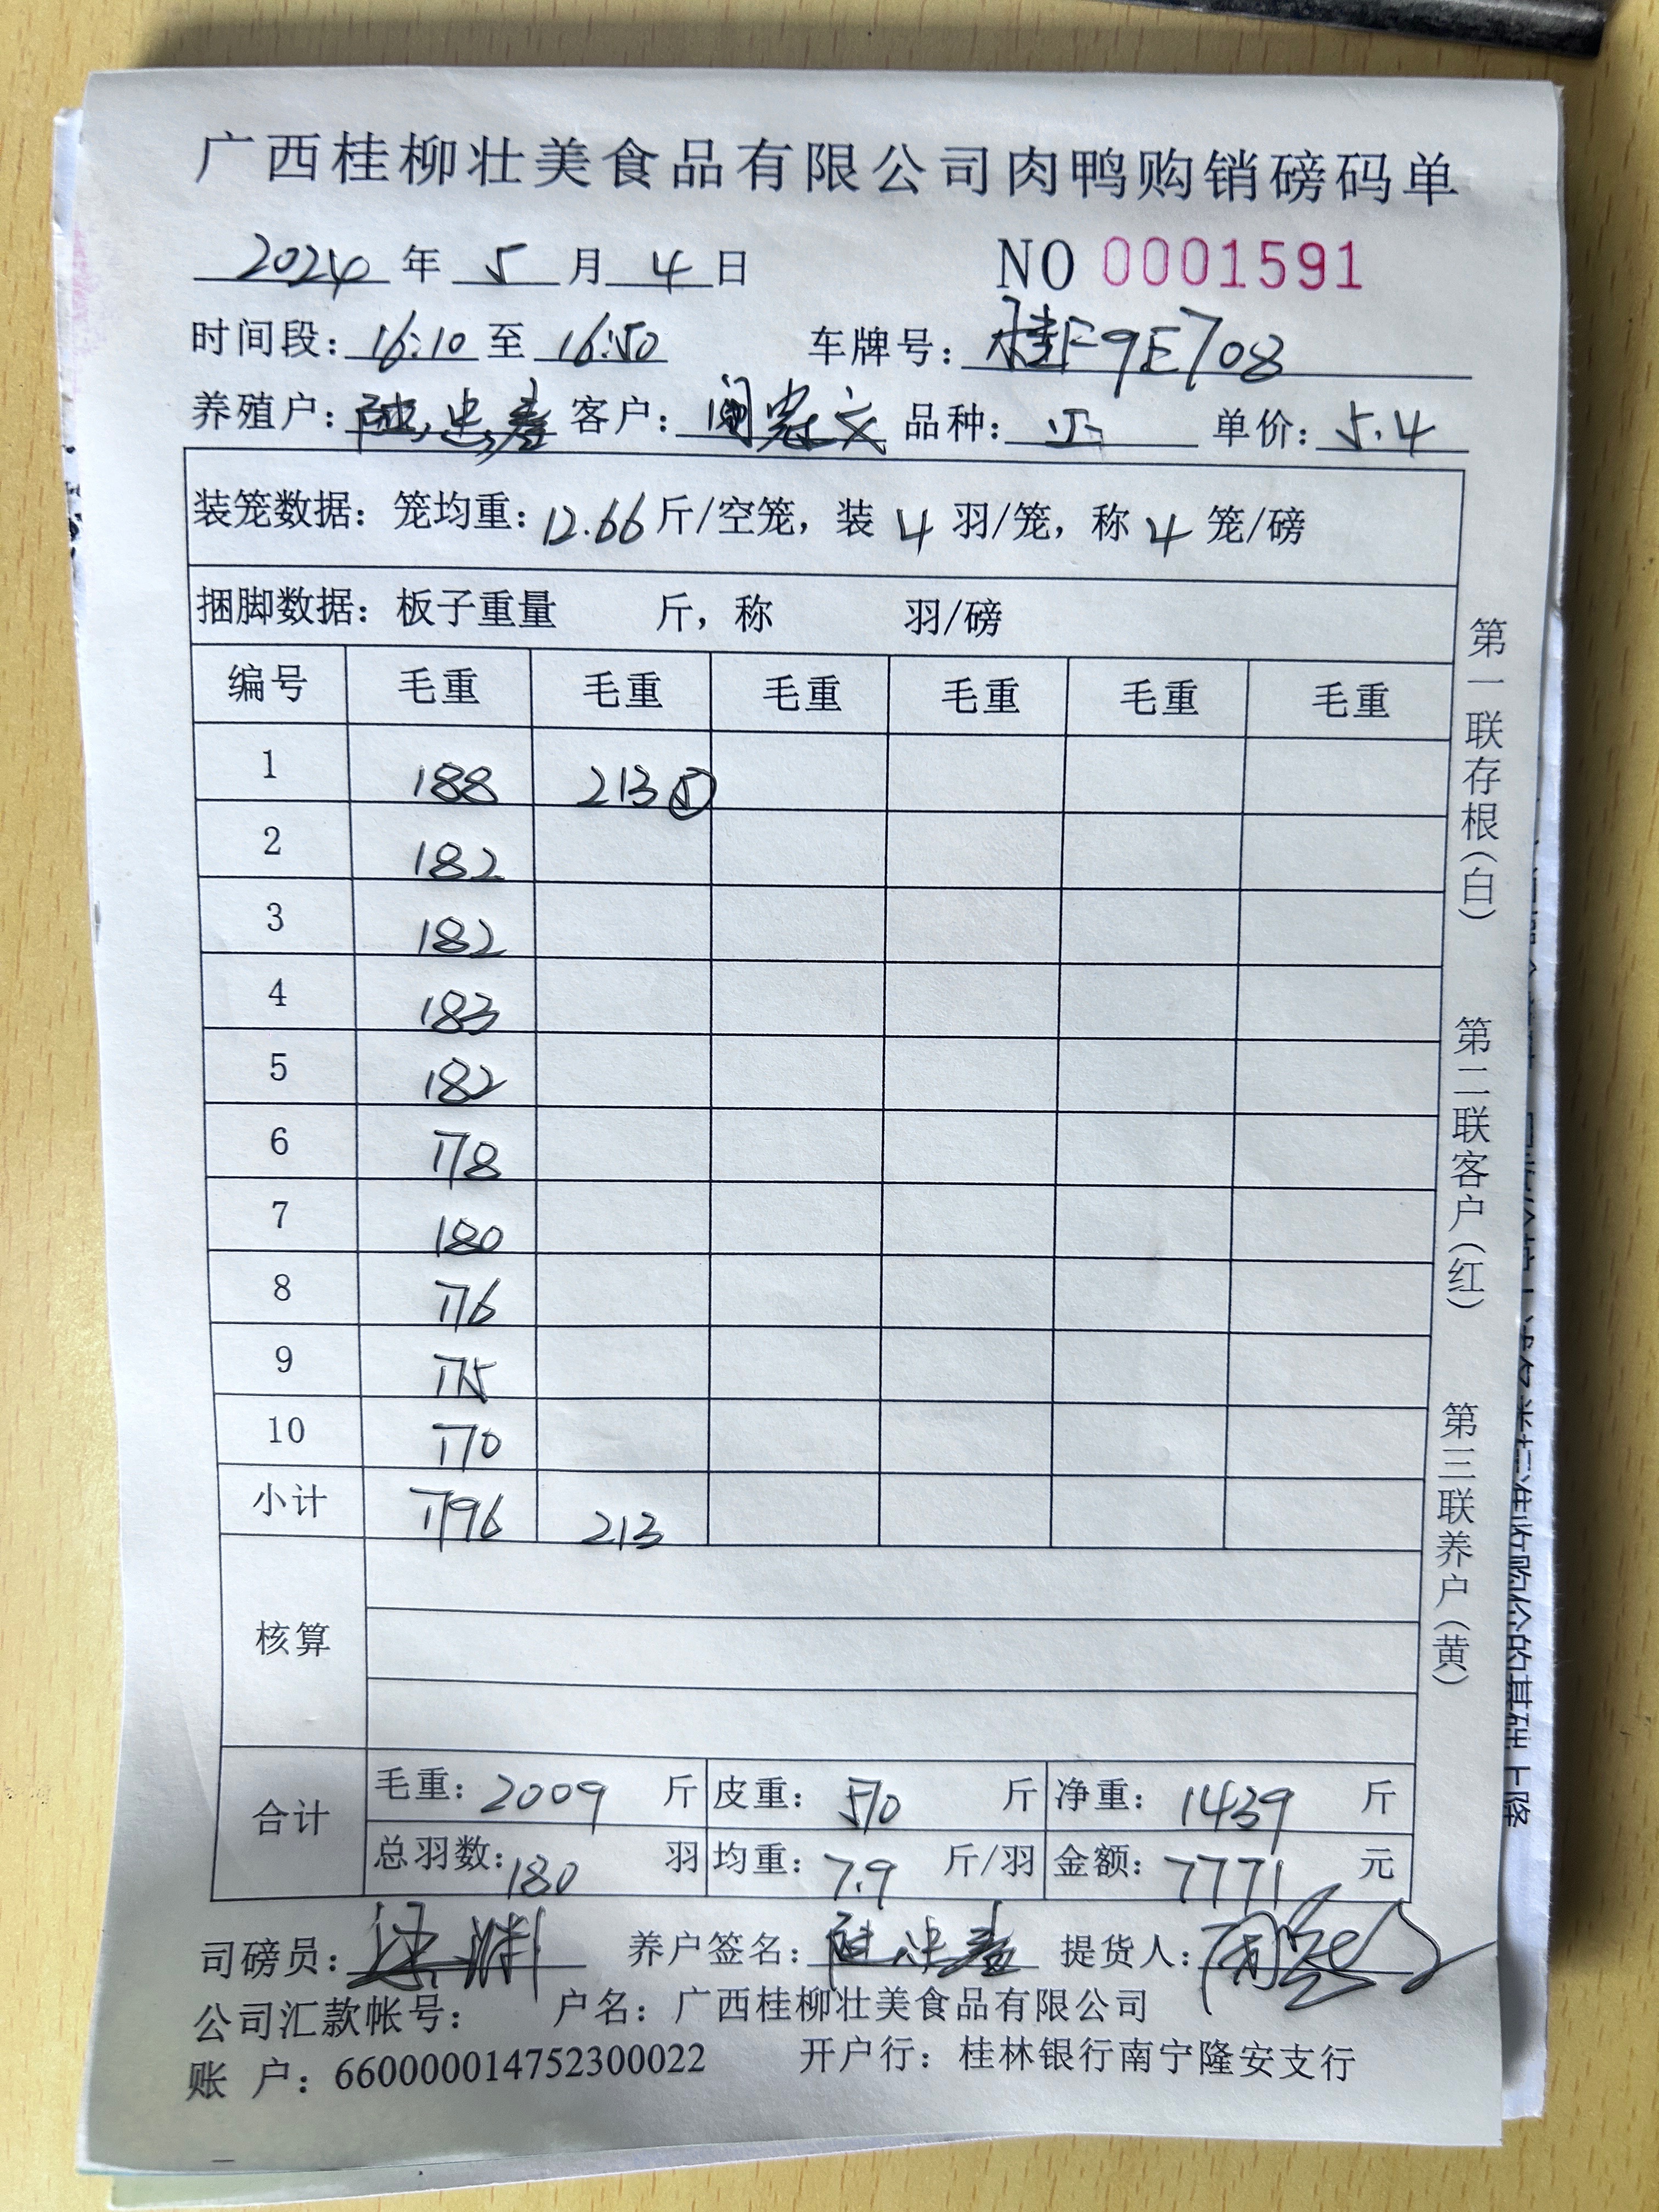 广西桂柳壮美食品有限公司肉鸭购销磅码单
2024年 5 月 4 日 NO 0001591
时间段：16:10 至 16:50 车牌号：桂F9E708
养殖户：陆忠寿 客户： 品种： 单价：5.4
装笼数据：笼均重：12.66斤/空笼，装 4 羽/笼，称 4 笼/磅
捆脚数据：板子重量 斤，称 羽/磅
编号 毛重 毛重 毛重 毛重 毛重 毛重
1 188 213⑤
2 182
3 182
4 183
5 182
6 178
7 180
8 176
9 175
10 170
小计 1796 213
核算
合计 毛重：2009 斤 皮重：570 斤 净重：1439 斤
总羽数：180 羽 均重：7.9 斤/羽 金额：7771 元
司磅员： 养户签名：陆忠寿 提货人：
公司汇款帐号： 户名：广西桂柳壮美食品有限公司
账 户：660000014752300022 开户行：桂林银行南宁隆安支行
第一联存根（白）
第二联客户（红）
第三联养户（黄）